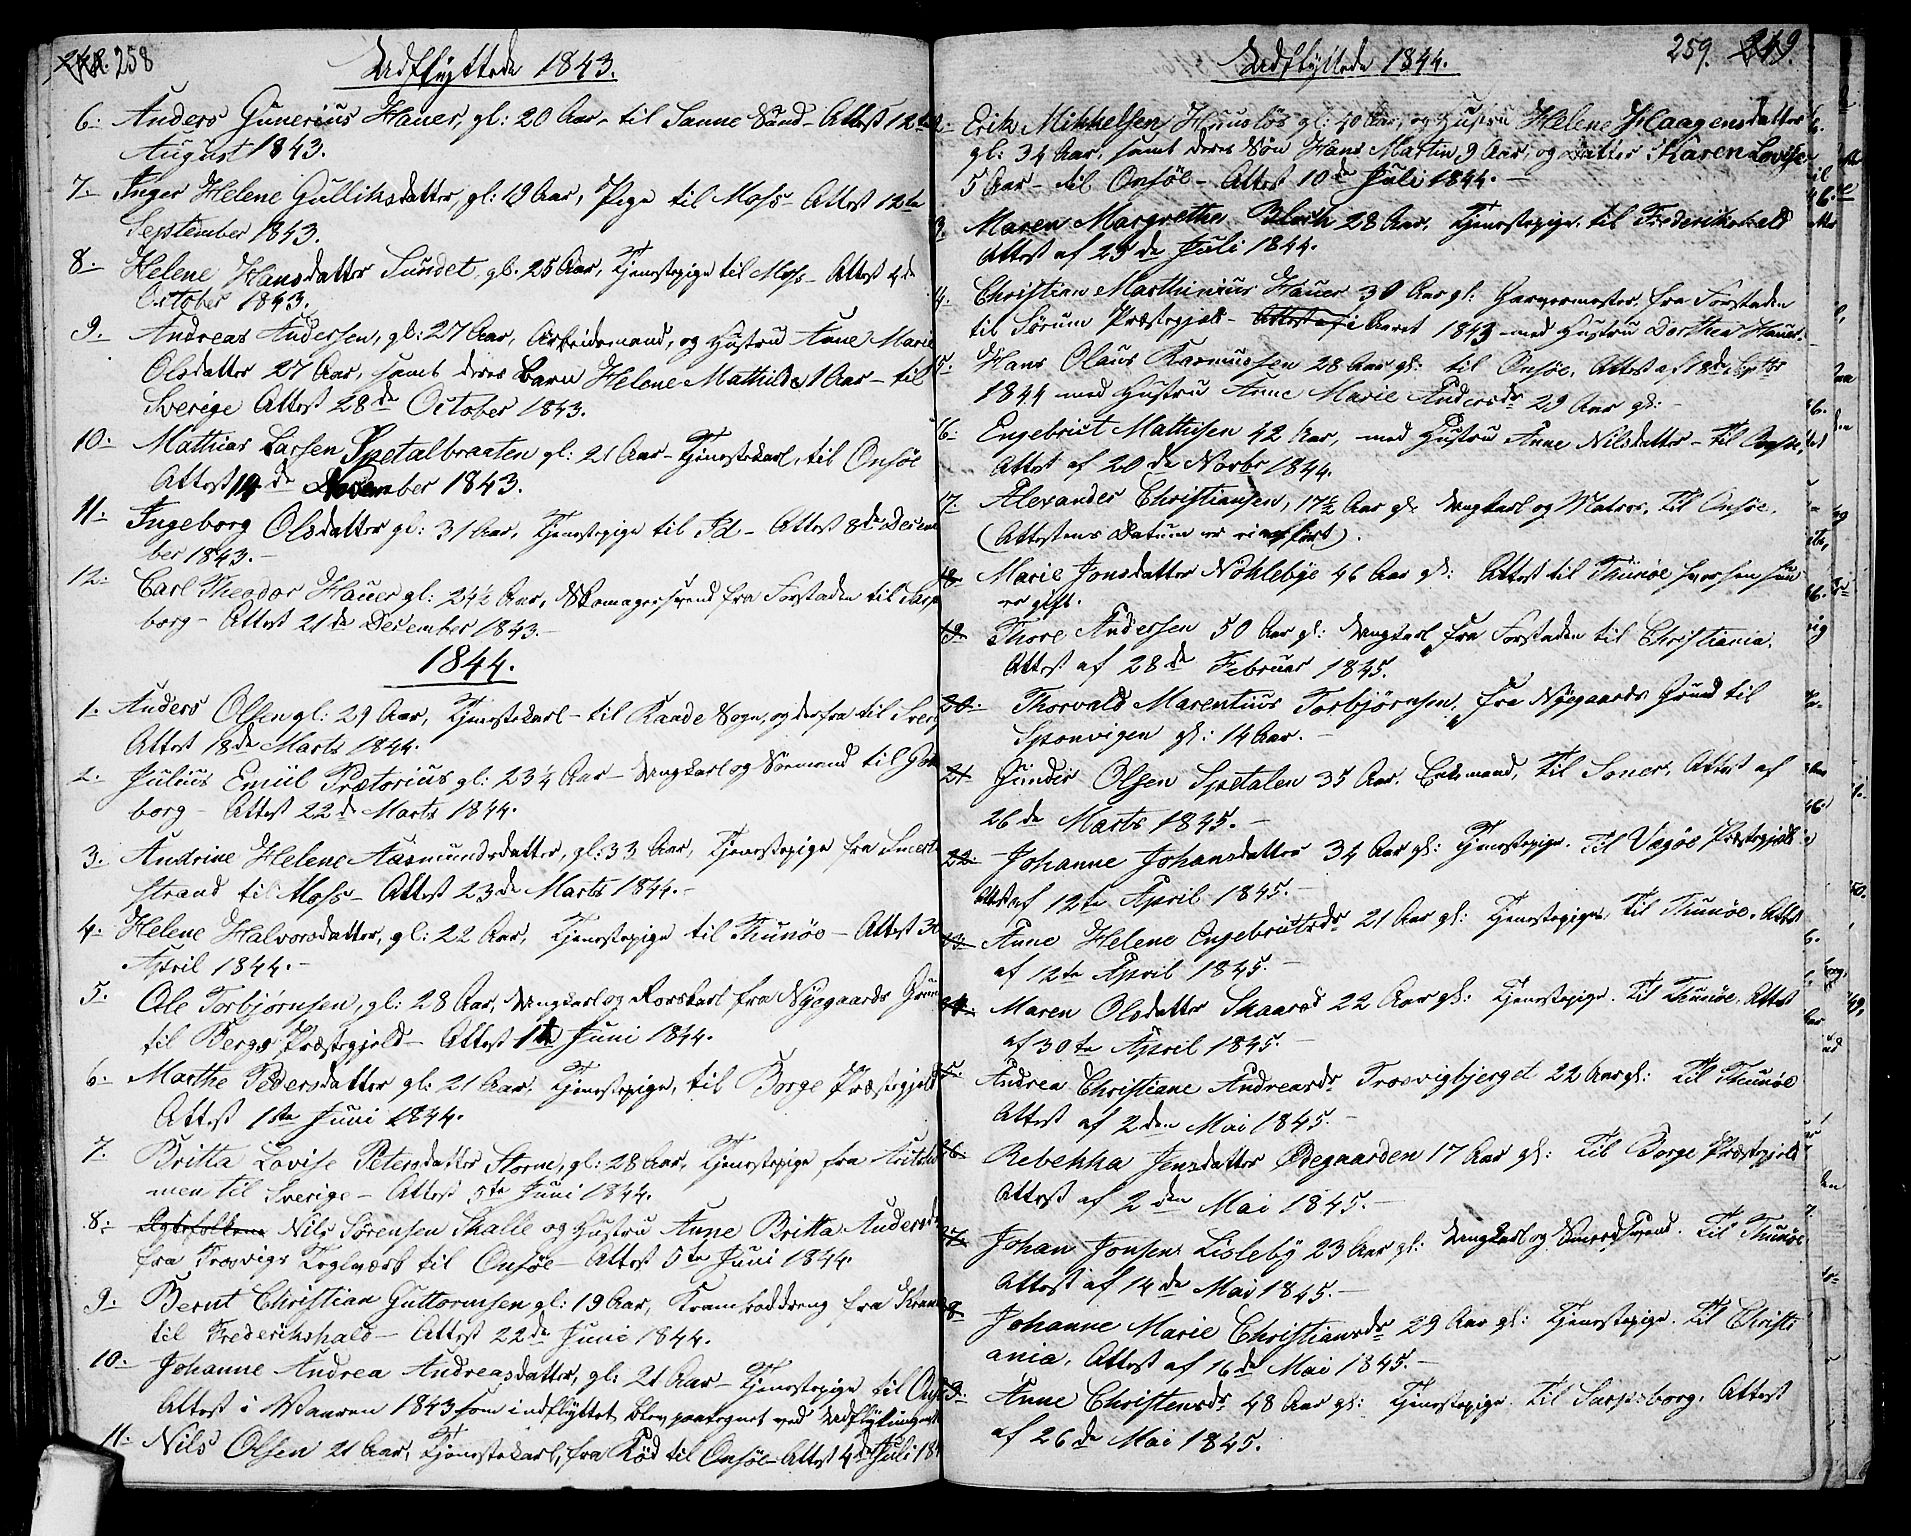 258
Udflyttede 1843.
6. Anders Gunerius Hauer, gl: 20 Aar - til Sanne Sund - Attest 12te
August 1843.
7. Inger Helene Gulliksdatter, gl: 19 Aar, Pige til Moss - Attest 12te
September 1843.
8. Helene Hansdatter Sundet, gl. 25 Aar, Tjenestepige til Moss - Attest 4de
October 1843.
9. Andreas Andersen, gl: 27 Aar, Arbeidsmand, og Hustru Anne Marie
Olsdatter 27 Aar, samt deres Barn Helene Mathilde 1 Aar - til
Sverige Attest 28de October 1843.
10. Mathias Larsen Spetalbraaten gl: 21 Aar - Tjenestekarl, til Onsöe
Attest 14de November 1843.
11. Ingeborg Olsdatter gl: 31 Aar, Tjenestepige til Id - Attest 8de Decem
ber 1843. -
12. Carl Theodor Hauer gl: 24½ Aar, Skomagersvend fra Forstaden til Sarps
borg - Attest 21de December 1843. -
1844.
1. Anders Olsen gl: 29 Aar, Tjenestekarl - til Raade Sogn, og derfra til Sverig
Attest 18de Marts 1844.
2. Julius Emiil Prætorius gl: 23¼ Aar - Ungkarl og Sömand til
borg - Attest 22de Marts 1844.
3. Andrine Helene Aasmundsdatter, gl: 33 Aar, Tjenestepige fra
strand til Moss - Attest 23de Marts 1844. -
4. Helene Halvorsdatter, gl: 22 Aar, Tjenestepige til Thunöe - Attest 30
April 1844. -
5. Ole Torbjørnsen, gl: 28 Aar, Ungkarl og Rorskarl fra Nygaards Grund
til Bergs Præstegjeld - Attest 1te Juni 1844.
6. Marthe Pedersdatter gl: 21 Aar, Tjenestepige, til Borge Præstegjeld
Attest 1ste Juni 1844.
7. Britta Lovise Petersdatter Storm, gl: 28 Aar, Tjenestepige fra
men til Sverige - Attest 5te Juni 1844.
8: Ægtefolkene Nils Sørensen Skalle og Hustru Anne Britta Andersdr
fra Trosvigs Teglværk til Onsöe - Attest 5te Juni 1844.
9. Bernt Christian Guttormsen gl: 19 Aar, Kramboddreng fra
til Frederikshald - Attest 22de Juni 1844.
10. Johanne Andrea Andreasdatter, gl: 21 Aar - Tjenestepige til Onsö
Attest i Vaaren 1843 som indflyttet blev paategnet ved Udflytningen
11. Nils Olsen 21 Aar, Tjenestekarl, fra Röd til Onsöe - Attest 4de Juli 18
Udflyttede 1844.
259. 249.
Erik Mikkelsen, Huusløs gl: 40 Aar, og Hustru Helene Haagensdatter
gl: 34 Aar, samt deres Søn Hans Martin 9 Aar, og Datter Karen Lovise
5 Aar - til Onsöe - Attest 10de Juli 1844. -
3. Maren Margrethe Bloch 28 Aar, Tjenestepige, til Frederikshald
Attest af 23de Juli 1844.
4. Christian Marthinius Hauer 30 Aar gl: Garvermester, fra Forstaden
til Sörum Præstegjeld - Attest af i Aaret 1843 med Hustru Dorthea Hauer.
5. Hans Olaus Rasmussen 28 Aar gl: til Onsöe, Attest af 18de Septbr
1844 med Hustru Anne Marie Andersdr 29 Aar gl: -
6. Engebrict Mathisen 42 Aar, med Hustru Anne Nilsdatter - til Onsöe,
Attest af 20de Novbr 1844.
7. Alexander Christiansen, 17½ Aar gl. Ungkarl og Matros, til Onsöe,
(Attestens Datum er ei anført).
18. Marie Jonsdatter Nöhlebye 46 Aar gl: Attest til Thunöe hvorhen hun
er gift.
19. Thore Andersen 50 Aar gl: Ungkarl, fra Forstaden til Christiania,
Attest af 28de Februar 1845.
20. Thorvald Marentius Torbjørnsen, fra Nygaards Grund til
Sponvigen gl: 14 Aar. -
21. Gunder Olsen Spetalen 35 Aar. Enkemand, til Soner, Attest af
26de Marts 1845. -
22. Johanne Johansdatter 34 Aar gl: Tjenestepige. til Vagöe Præstegjeld
Attest af 12te April 1845. -
23. Anne Helene Engebretsdr 21 Aar gl: Tjenestepige, til Thunöe, Attest
af 12te April 1845. -
24. Maren Olsdatter Skaared 22 Aar gl: Tjenestepige. til Thunöe. Attest
af 30te April 1845. -
25. Andrea Christiane Andreasdr Trosvigbjerget 22 Aar gl: til Thunöe
Attest af 2den Mai 1845. -
26. Rebekka Jensdatter Ødegaarden 17 Aar gl: til Borge Præstegjeld
Attest af 2den Mai 1845. -
27. Johan Jonsen Lisleby 23 Aar gl: Ungkarl og Smedsvend. til Thunöe
Attest af 14de Mai 1845. -
8. Johanne Marie Christiansdr 29 Aar gl: Tjenestepige. til Christi
ania, Attest af 16de Mai 1845. -
9. Anne Christensdr 48 Aar gl: Tjenestepige til Sarpsborg, Attest
af 26de Mai 1845.